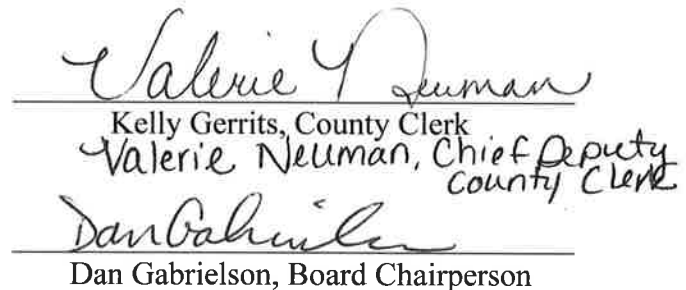 Valerie Y Neuman
Kelly Gerrits, County Clerk
Valerie Neuman, Chief Deputy
County Clerk
Dan Gabrielson
Dan Gabrielson, Board Chairperson